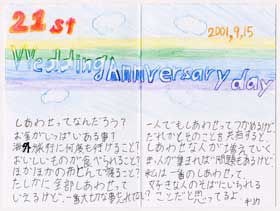 21st
2001,9,15
Wedding Anniversary day
しあわせってなんだろう?
お金がいっぱいある事?
海外旅行に何度も行けること?
おいしいものが食べられること?
ほかほかのおふとんで寝ること?
たしかに全部しあわせって
いえるけど、一番大切な事忘れてない?
一人でもしあわせってつかめるけど
だれかとそのことを共有すると
しあわせな人が増えていく
まあ人が集まれば問題もあるけど
私は一番のしあわせって、
大好きな人のそばにいられる
ことだと思ってるよ